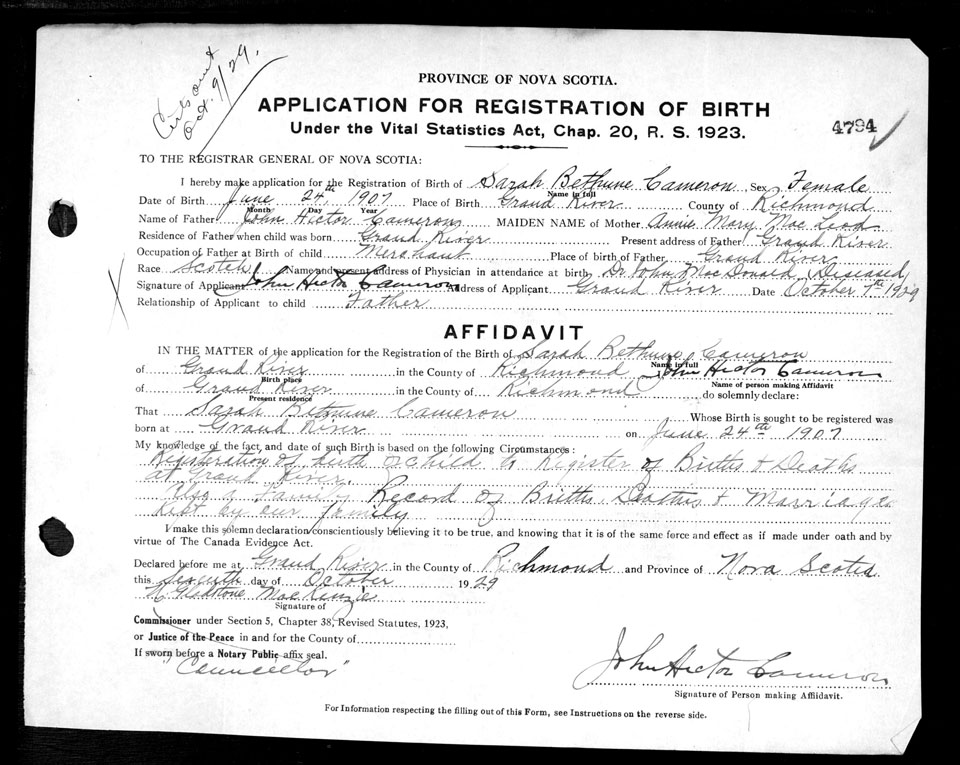 Cert sent
Oct. 9/29.
PROVINCE OF NOVA SCOTIA.
APPLICATION FOR REGISTRATION OF BIRTH
Under the Vital Statistics Act, Chap. 20, R. S. 1923.
4794
TO THE REGISTRAR GENERAL OF NOVA SCOTIA:
I hereby make application for the Registration of Birth of Sarah Bethune Cameron, Sex Female
Name in full
Date of Birth June 24th 1907 Place of Birth Grand River County of Richmond
Month Day Year
Name of Father John Hector Cameron MAIDEN NAME of Mother Annie Mary Mac Leod
Residence of Father when child was born Grand River Present address of Father Grand River
Occupation of Father at Birth of child Merchant Place of birth of Father Grand River
Race Scotch Name and present address of Physician in attendance at birth Dr John MacDonald (Diseased)
Signature of Applicant John Hector Cameron Address of Applicant Grand River Date October 7th 1929
Relationship of Applicant to child Father
AFFIDAVIT
IN THE MATTER of the application for the Registration of the Birth of Sarah Bethune Cameron
Name in full
of Grand River in the County of Richmond John Hector Cameron
Birth place Name of person making Affidavit
of Grand River in the County of Richmond do solemnly declare:
Present residence
That Sarah Bethune Cameron Whose Birth is sought to be registered was
born at Grand River on June 24th 1907
My knowledge of the fact, and date of such Birth is based on the following Circumstances:
Registration of birth of child in Register of Births & Deaths
at Grand River.
Also a Family Record of Births Deaths & Marriages
kept by our family
I make this solemn declaration conscientiously believing it to be true, and knowing that it is of the same force and effect as if made under oath and by
virtue of The Canada Evidence Act.
Declared before me at Grand River in the County of Richmond and Province of Nova Scotia
this Seventh day of October 1929
Gladstone MacKenzie
Signature of
Commissioner under Section 5, Chapter 38, Revised Statutes, 1923,
or Justice of the Peace in and for the County of
If sworn before a Notary Public affix seal.
"Councillor"
John Hector Cameron
Signature of Person making Affidavit.
For Information respecting the filling out of this Form, see Instructions on the reverse side.